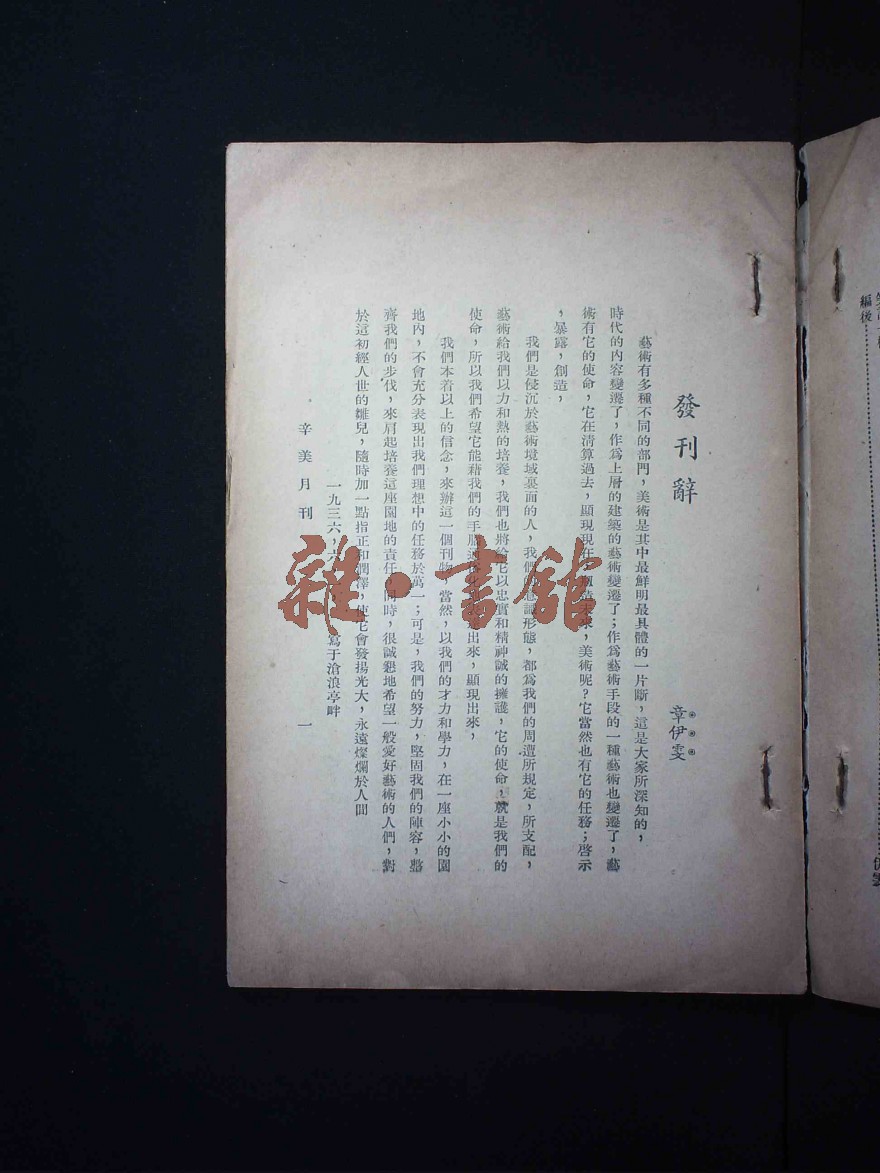 編後
發刊辭
章伊雯
藝術有多種不同的部門，美術是其中最鮮明最具體的一片斷，這是大家所深知的，
時代的內容變遷了，作爲上層的建築的藝術變遷了；作爲藝術手段的一種藝術也變遷了，藝
術有它的使命，它在清算過去，顯現現在，創造未來，美術呢？它當然也有它的任務；啓示
，暴露，創造，
我們是侵沉於藝術境域裏面的人，我們的意識形態，都爲我們的周遭所規定，所支配，
藝術給我們以力和熱的培養，我們也將給它以忠實和精神誠的擁護，它的使命，就是我們的
使命，所以我們希望它能藉我們的手 出來，顯現出來，
我們本着以上的信念，來辦這一個刊物，當然，以我們的才力和學力，在一座小小的園
地內，不會充分表現出我們理想中的任務於萬一；可是，我們的努力，堅固我們的陣容，整
齊我們的步伐，來肩起培養這座園地的責任，同時，很誠懇地希望一般愛好藝術的人們，對
於這初經人世的雛兒，隨時加一點指正和潤澤，使它會發揚光大，永遠燦爛於人間
一九三六，六 寫于滄浪亭畔
辛美月刊
一
雜·書館